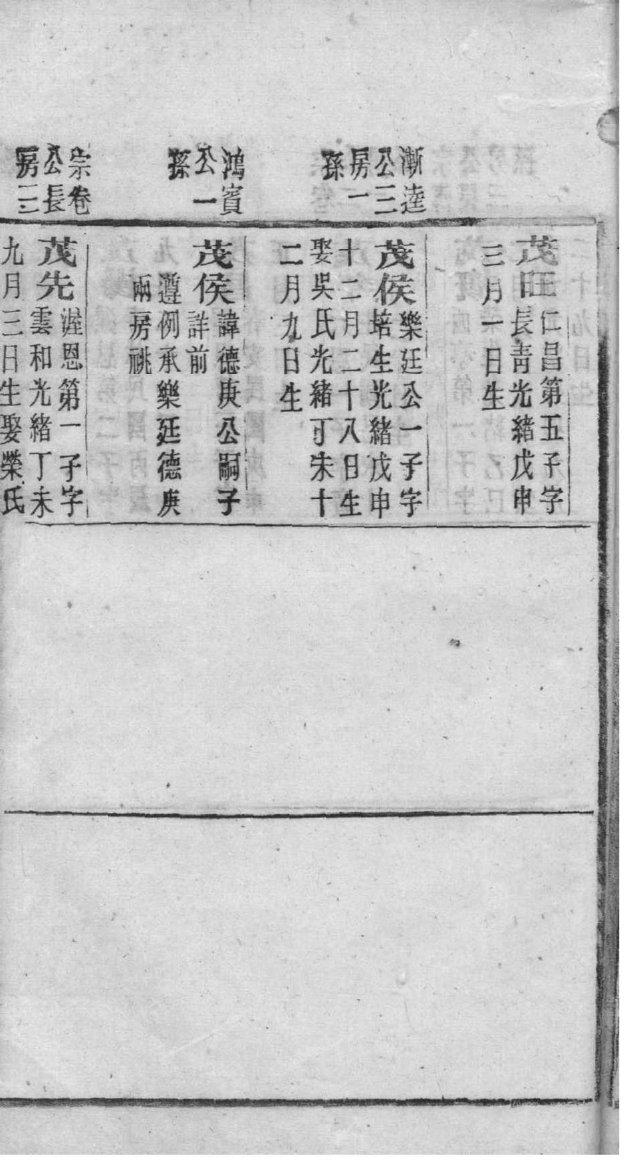 茂旺仁昌第五子字
長青光緒戊申
三月一日生
漸逵
公二
房一
孫
茂侯樂廷公一子字
培生光緒戊申
十二月二十八日生
娶吳氏光緒丁未十
二月九日生
鴻賓
公一
孫
茂侯諱德庚公嗣子
詳前
遵例承樂廷德庚
兩房祧
宗卷
公長
房三
茂先渥恩第一子字
雲和光緒丁未
九月三日生娶榮氏